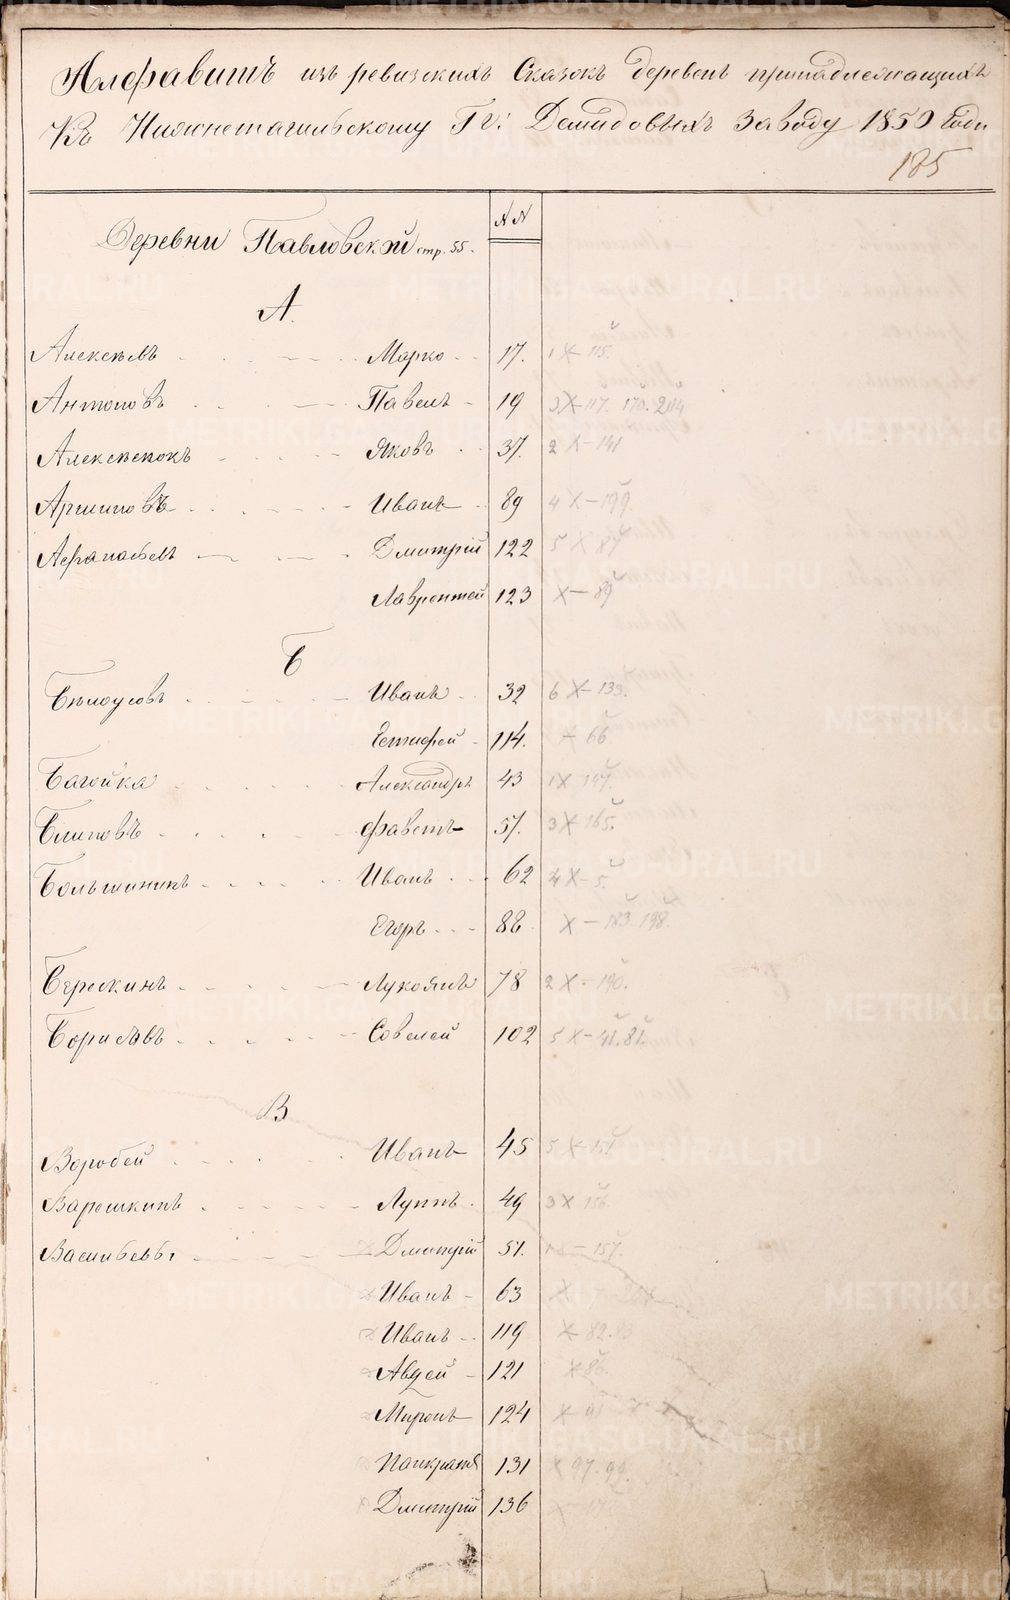 Алфавитъ изъ ревизскихъ Сказокъ деревень принадлежащихъ
Къ Нижнетагильскому Гг: Демидовыхъ Заводу 1850 года
185
Деревни Павловской стр. 55.
NN
А.
Алексѣевъ Марко 17. 1 X 115.
Антоновъ Павелъ 19 3 X-117. 170. 204
Алексѣенокъ Яковъ 37. 2 X-141
Архиповъ Иванъ 89 4 X-199.
Афанасьевъ Дмитрій 122 5 X 87
Лаврентей 123 X-89
Б
Бѣлоусовъ Иванъ 32 6 X-133.
Естифей 114. - 66
Багойка Александръ 43 1X 147.
Блиновъ Фавстъ 57. 3X-165.
Большининъ Иванъ 62 4 X-5.
Егоръ 88. X-183. 198.
Берескинъ Лукоянъ 78 2 X-190.
Борисовъ Совелей 102 5 X-41.81.
В
Воробей Иванъ 45 5 X 151
Варошкинъ Луппъ 49 3 X 156.
Васильевы Дмитрій 51. 157.
Иванъ 63 X
Иванъ 119 X-82.83
Авдей 121 X 86.
Миронъ 124 X
Панкратъ 131 X 97.99.
Дмитрій 136